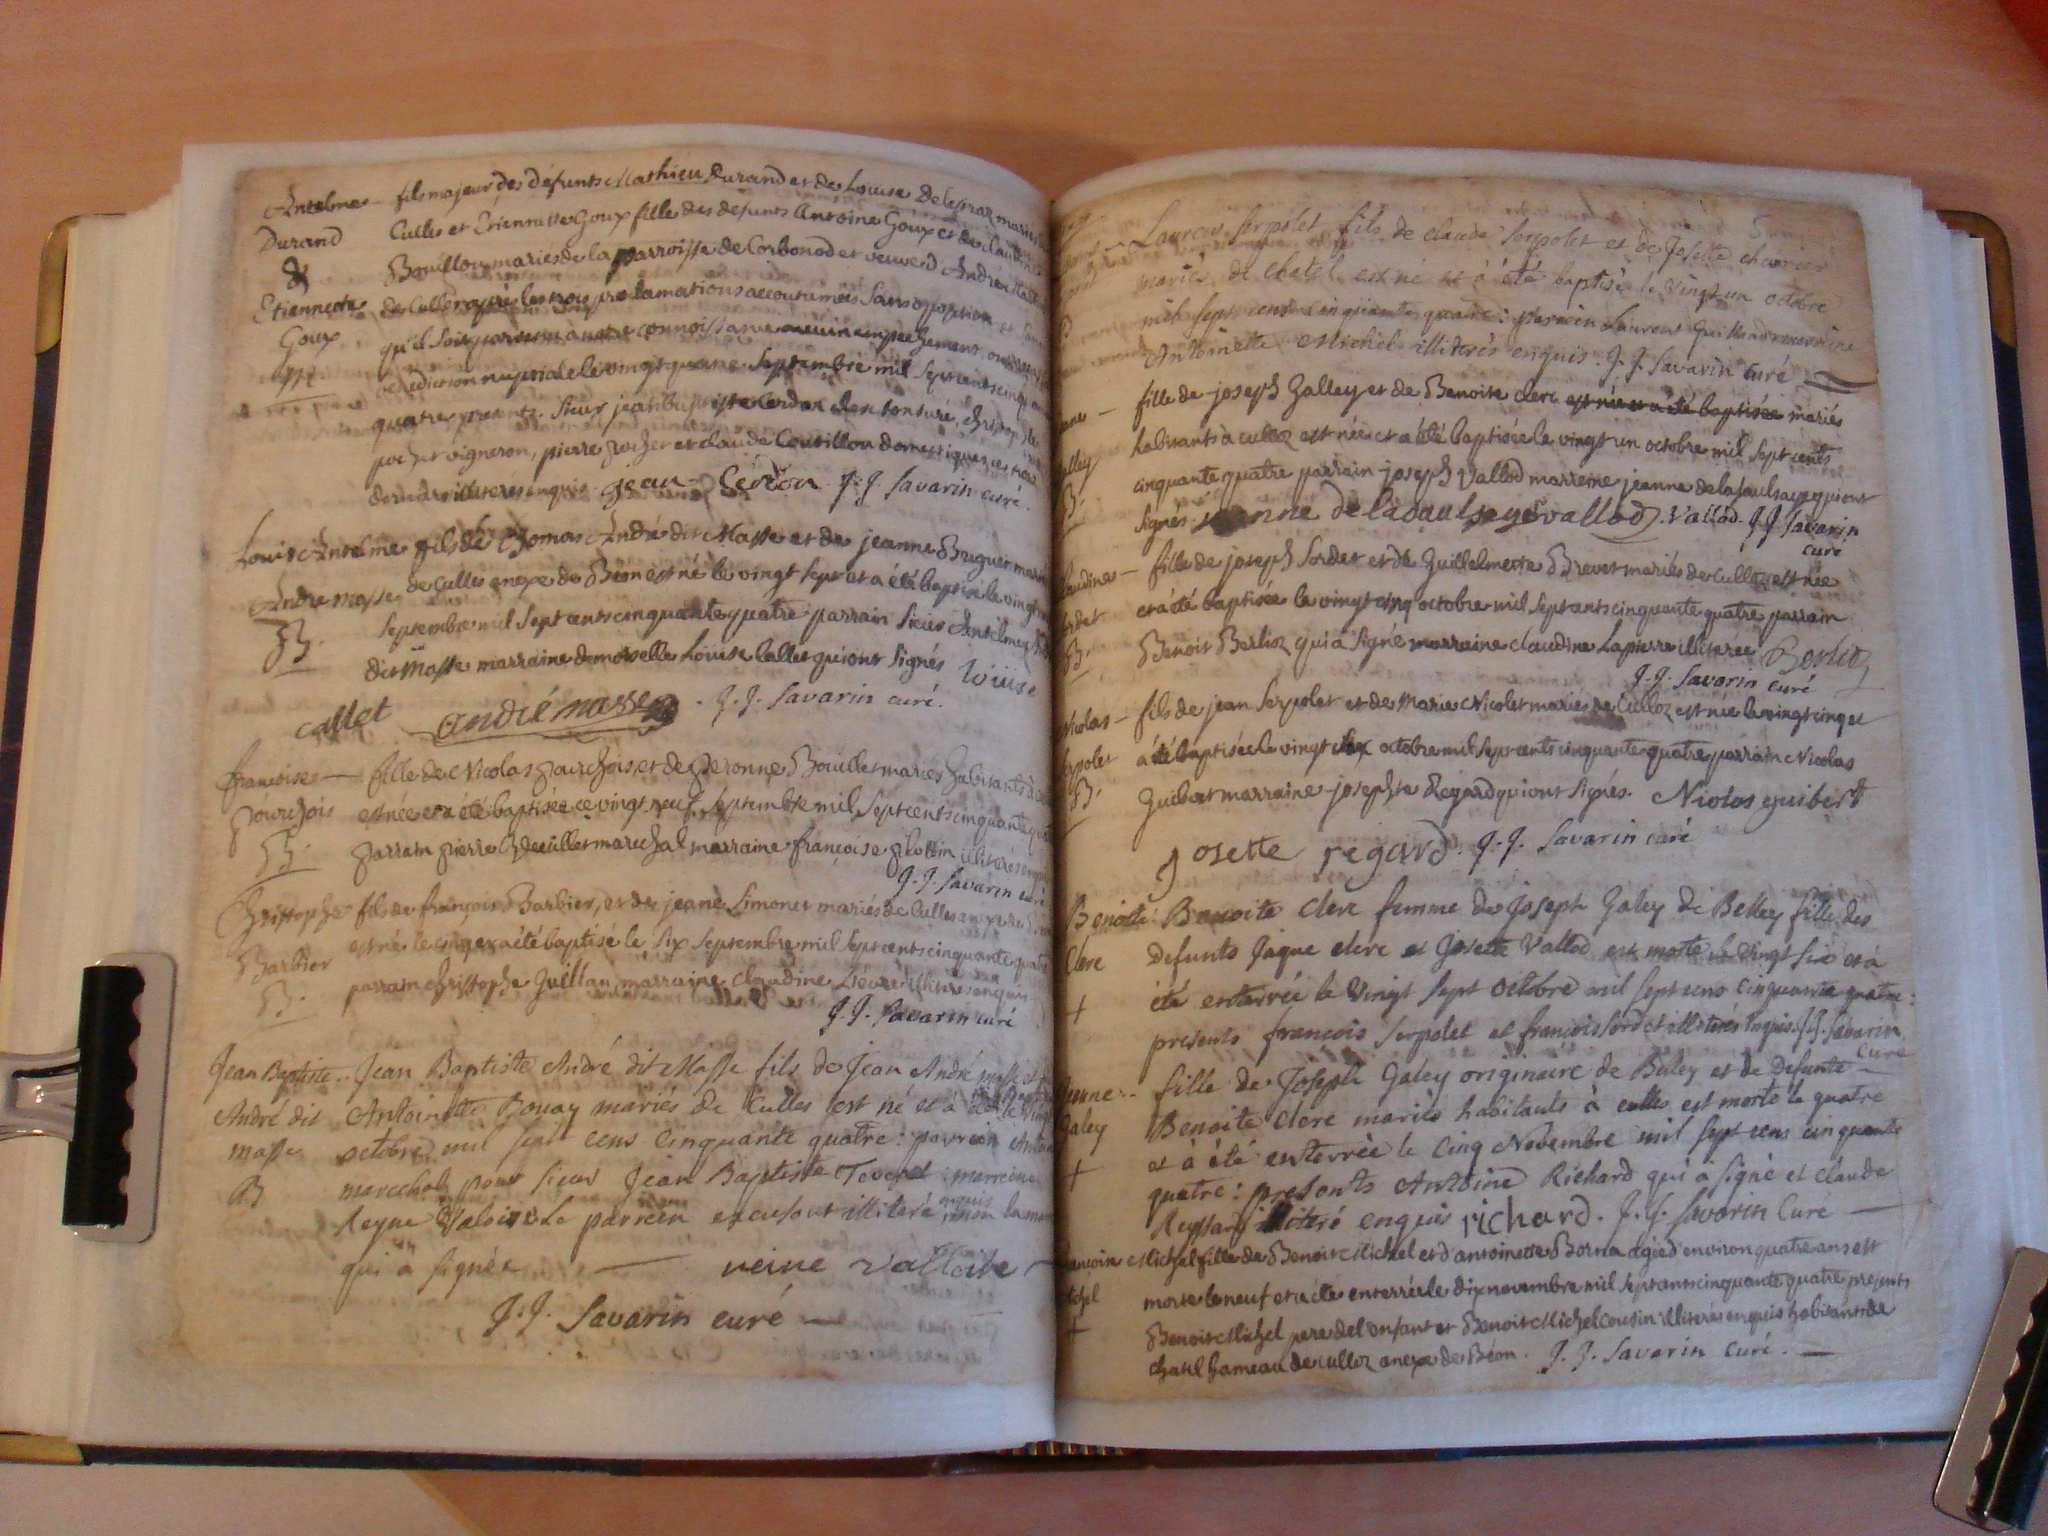 Antelme – fils majeur des défunts Mathieu Durand et de Louise Delastraz mariés
Durand Culles et Etiennette Goux fille des défunts Antoine Goux et de Claudine
& Bouillou mariés de la parroisse de Corbonod et veuve d'André
Etiennette de Culles après les trois proclamations accoutumées sans opposition et sans
Goux qu'il soit parvenu a notre connoissance aucun empechement ont reçu
M. benediction nuptiale le vingt quatre Septembre mil Sept cents cinquante
quatre presents. Sieur jean baptiste Cerdon clerc tonsuré, christophe
pochet vigneron, pierre pochet et claude Coutillou domestiques ces trois
derniers illiteres enquis. jean Cerdon J. J. Savarin curé.
Louis Antelme fils de Thomas André dit Masse et de jeanne Bruguier mariés
André masse de Culles anexe de Béon est né le vingt sept et a été baptisé le vingt
B. Septembre mil Sept cents cinquante quatre parrain Sieur Antelme
dit Masse marraine demoiselle Louise Callet qui ont Signés louise
callet andré masse J. J. Savarin curé.
françoise – fille de Nicolas pourchois et de peronne Boüillet mariés habitants à
pourchois est née et a été baptisée ce vingt neuf Septembre mil Sept cents cinquante quatre
B. parrain pierre Boüillet marechal marraine françoise illiterés enquis
J. J. Savarin curé
Christophe fils de françois Barbier, et de jeane Simonet mariés de Culles anexe de
Barbier est né le cinq et a été baptisé le Six Septembre mil Sept cents cinquante quatre
B. parrain christophe Guillau marraine Claudine Liévre illiteres enquis
J. J. Savarin curé
Jean Baptiste.. Jean Baptiste André dit Masse fils de Jean André masse et
André dit Antoinette Bouay mariés de Culles est né et à été
masse octobre mil sept cens cinquante quatre : parrein
B marechal pour sieur Jean Baptiste Tevenet : marreine
Reyne Valoise Le parrein excusant illiteré enquis non la marreine
qui à signée — reine valloite
J. J. Savarin curé —
Laurens Serpolet fils de claude Serpolet et de Josette charvet
mariés de chatel est né et à été baptisé le vingt un octobre
mil sept cens cinquante quatre : parrein Laurent Guilland marreine
Antoinette Michel illiterés enquis. J. J. Savarin curé
fille de joseph Galley et de Benoite clerc est née et a été baptisée mariés
habitants à culloz est née et a été baptisée le vingt un octobre mil Sept cents
alley cinquante quatre parrain joseph Vallod marreine jeanne de la saulsaye qui ont
B. signés. jeanne de lasaulsaye vallod. Vallod. J. J. Savarin
curé
laudine – fille de joseph Sordet et de Guillelmette Brevet mariés de Culloz est née
ordet et a été baptisée le vingt cinq octobre mil Sept cents cinquante quatre parrain
B. Benoit Berlioz qui a Signé marraine claudine Lapierre illiterée Berlioz
J. J. Savarin curé
Nicolas – fils de jean Serpolet et de Marie Nicolet mariés de Culloz est née le vingt cinq et
rpolet a été baptisée le vingt six octobre mil Sept cents cinquante quatre parrain Nicolas
B. Guibert marraine josephte Regard qui ont signés. Niolas guibert
Josette regard. J. J. Savarin curé
Benoite Benoite clerc femme de Joseph Galey de Belley fille des
Clerc defunts Jaque clerc et Josette Vallod est morte le vingt six et à
+ été enterrée le vingt sept octobre mil sept cens cinquante quatre :
presents françois Serpolet et françois Sordet illiterés enquis. J. J. Savarin
curé
Jeanne.. fille de Joseph Galey originaire de Beley et de defunte
Galey Benoite clerc mariés habitants à culles est morte le quatre
+ et à été enterrée le cinq Novembre mil sept cens cinquante
quatre : presents Antoine Richard qui à signé et claude
Reyssard illiteré enquis richard. J. J. Savarin Curé —
ançoise Michel fille de Benoit Michel et d'antoinette Borna agée d'environ quatre ans est
ichel morte le neuf et a été enterrée le dix novembre mil sept cents cinquante quatre presents
+ Benoit Michel pere de l'enfant et Benoit Michel cousin illiterés enquis habitants de
chatel hameau de culloz anexe de Béon. J. J. Savarin curé. —